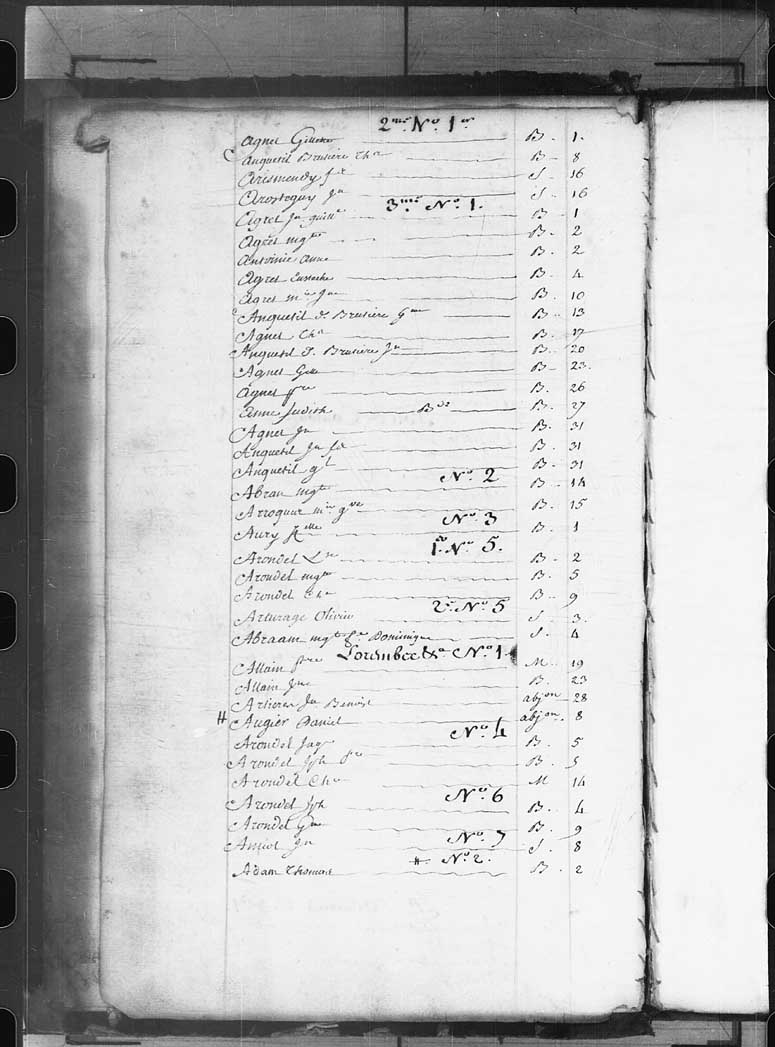 2me. No. 1er
Agnet B. 1.
C Anquetil Brutiere Chs B. 8
Arismendy S. 16
Arosteguy Jn S. 16
3me No. 1.
Agret Jn B. 1
Agres mgte B. 2
Antoinie anne B. 2
Agres Eustache B. 4
Agres mie Jne B. 10
Anquetil D. Brutiere Gme B. 13
Agnet Chs B. 17
Anquetil D. Brutiere Jn B. 20
Agnes B. 23.
Agnes B. 26
Judith B. 27
Agnet Jn B. 31
Anquetil Jn B. 31
Anquetil B. 31
No. 2
Abrau mgte B. 14
mie B. 15
No. 3
Aury B. 1
1er No. 5.
Arondel B. 2
Arondel mgte B. 5
Arondel Chs B. 9
2e. No. 5
Arturage Olivier S. 3.
Abraam mgte Dominique S. 4
Lorembec &a No. 1.
Allain M. 19
Allain Jne B. 23
Jn Benoist abjon 28
H Augier Daniel abjon. 8
No. 4
Arondel Jaqs B. 5
Arondel Jph B. 5
Arondel Chs M 14
No. 6
Arondel Jph B. 4
Arondel Gme B. 9
No. 7
Amiot Jn S. 8
H No. 2.
Adam Thomas B. 2